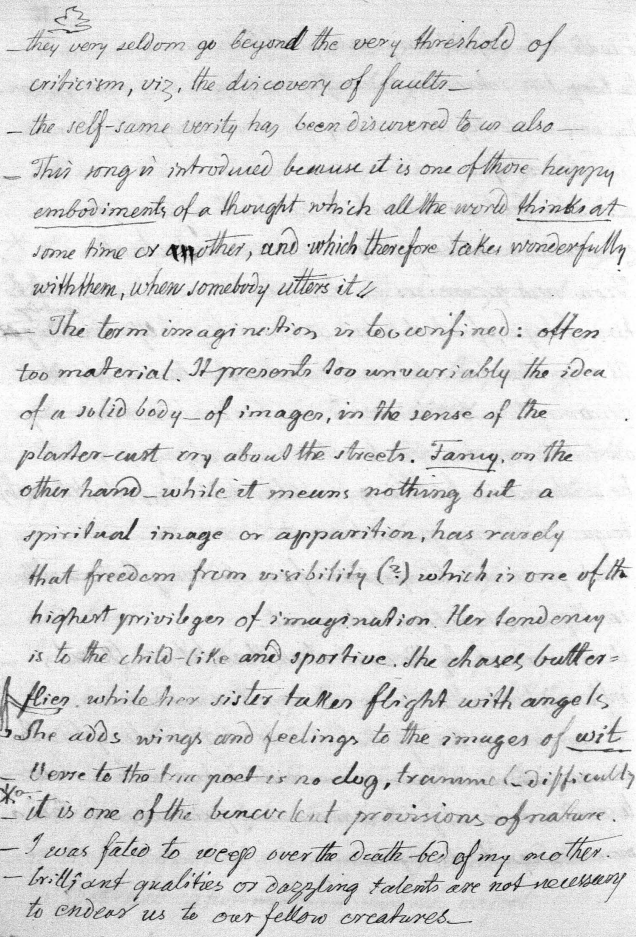 – they very seldom go beyond the very threshold of
criticism, viz, the discovery of faults –
– the self-same verity has been discovered to us also –
– This song is introduced because it is one of those happy
embodiments of a thought which all the world thinks at
some time or another, and which therefore takes wonderfully
with them, when somebody utters it //
– The term imagination is too confined: often
too material. It presents too unvariably the idea
of a solid body – of images, in the sense of the
plaster-cast cry about the streets. Fancy, on the
other hand – while it means nothing but a
spiritual image or apparition, has rarely
that freedom from visibility (?) which is one of th
highest privileges of imagination. Her tendency
is to the child-like and sportive. She chases butter=
flies, while her sister takes flight with angels
She adds wings and feelings to the images of wit
– Verse to the true poet is no clog, trammel – difficulty
it is one of the benevolent provisions of nature.
– I was fated to weep over the death-bed of my mother.
– brilliant qualities or dazzling talents are not necessary
to endear us to our fellow creatures –